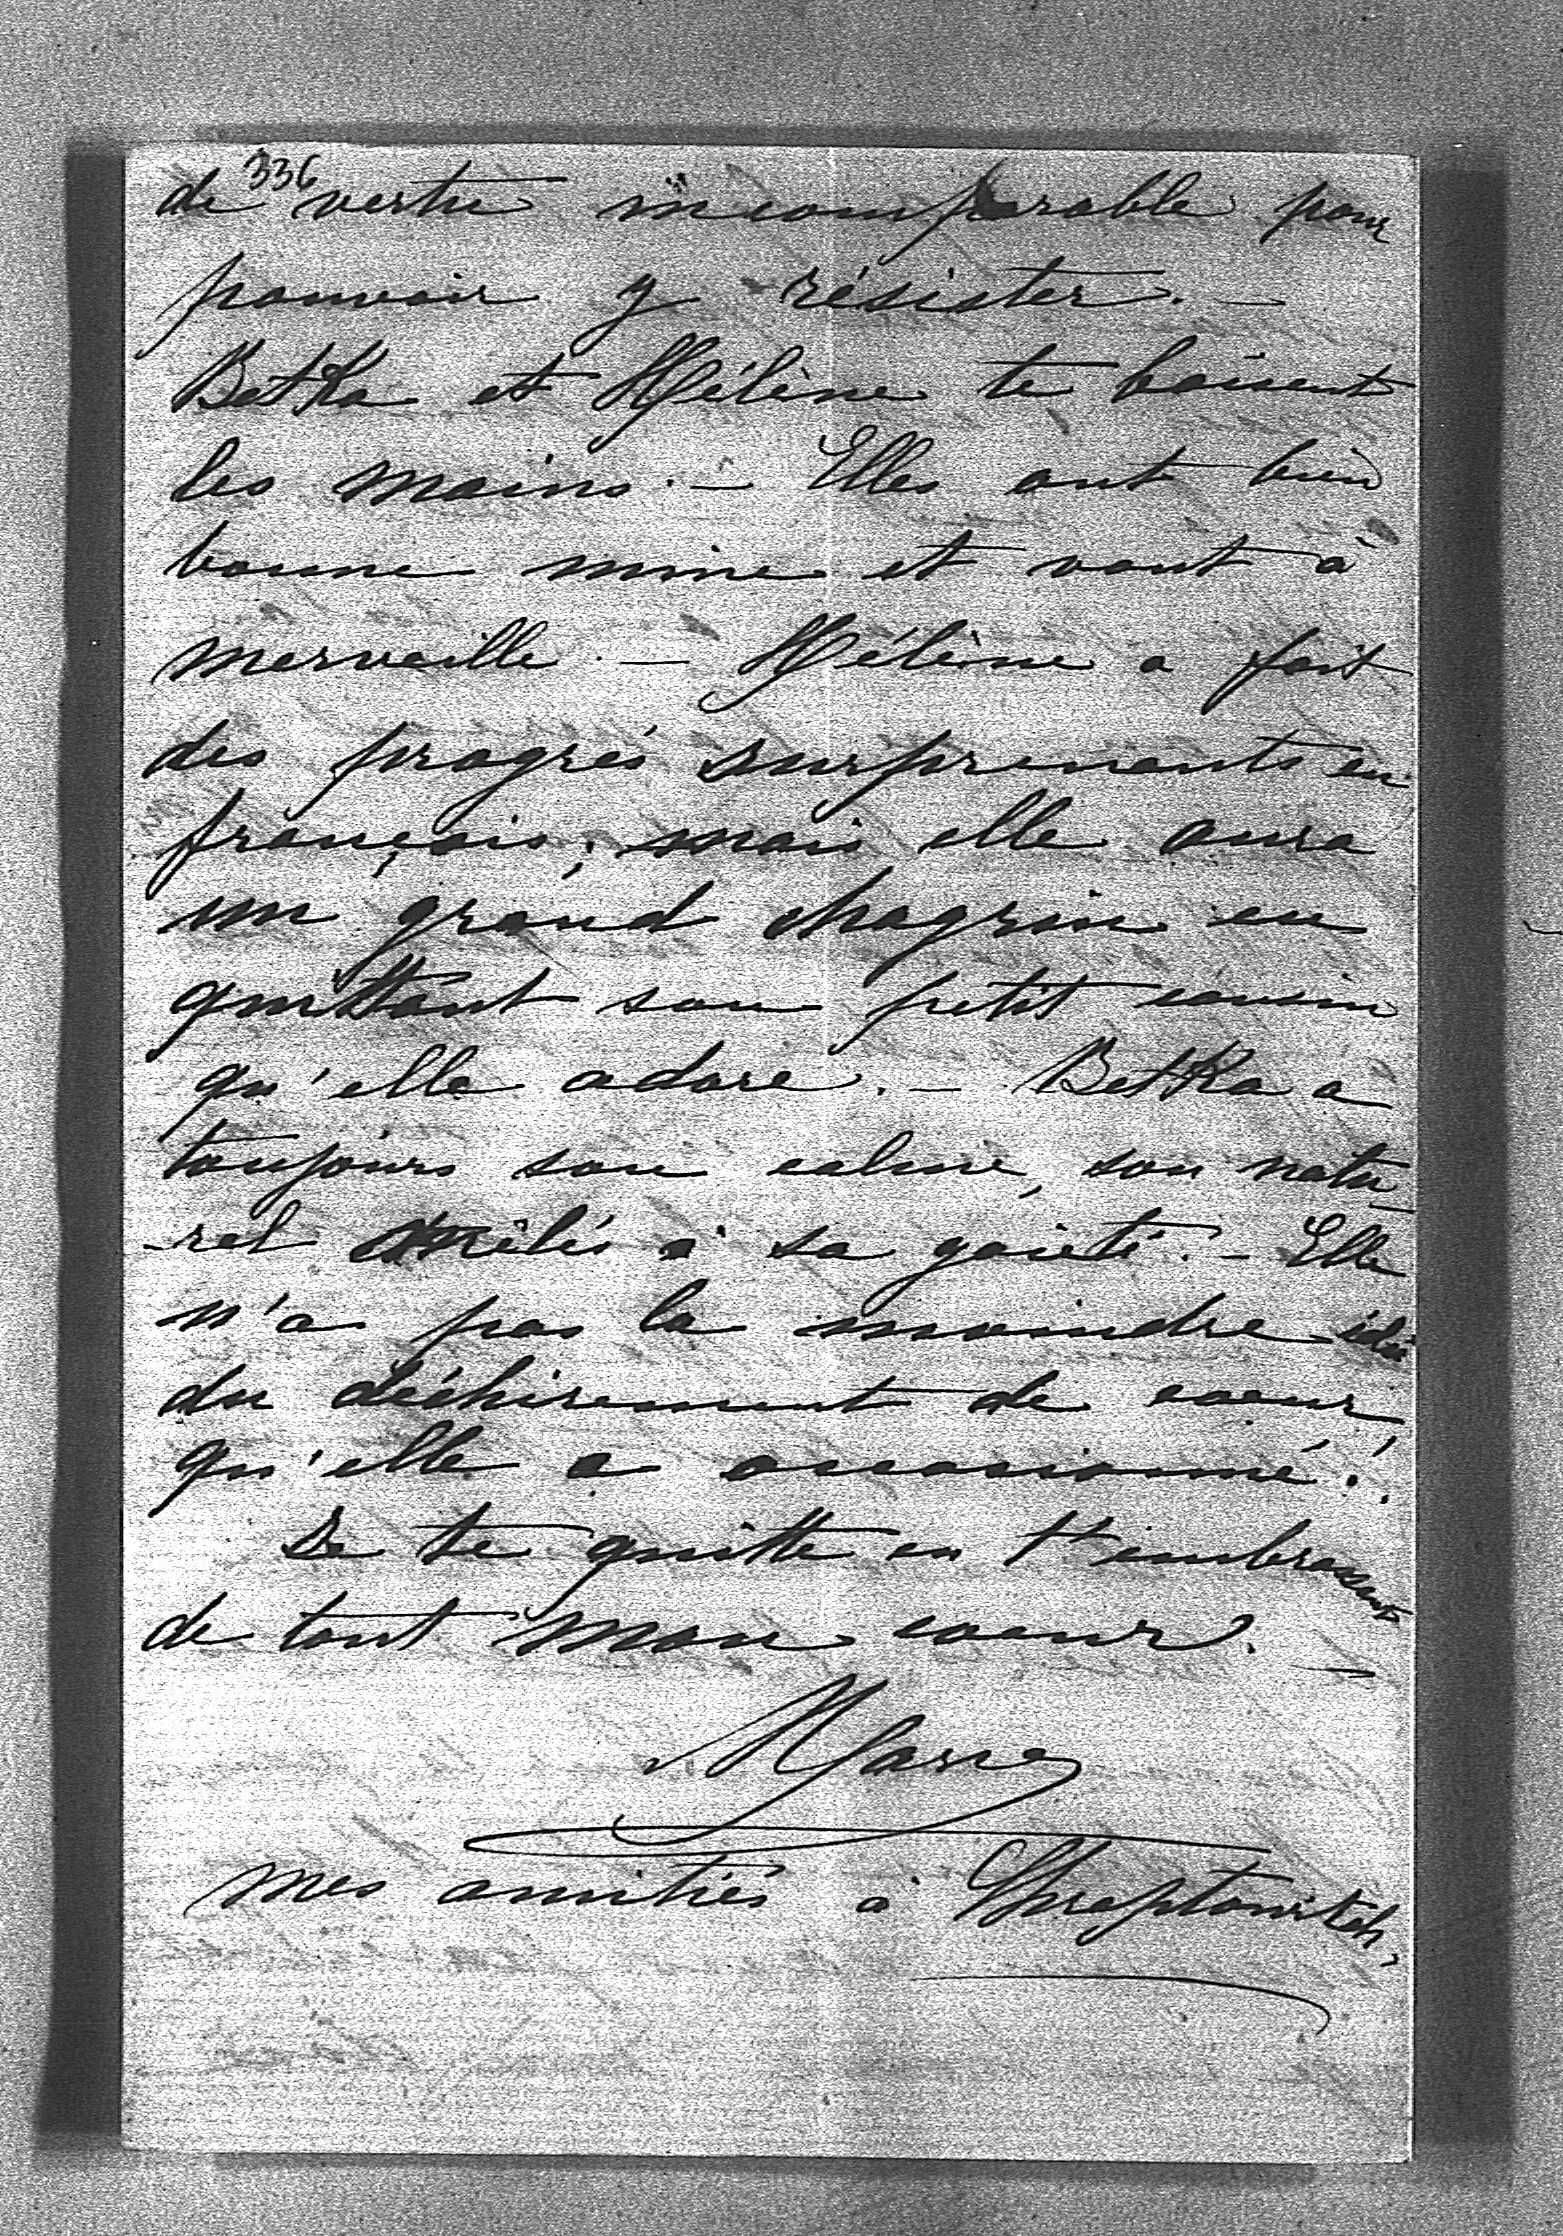 336
de vertu incomparable pour
pouvoir y résister. —
Betka et Hélène te baisent
les mains. — Elles ont bien
bonne mine et vont à
merveille. — Hélène a fait
des progrés surprenants en
français; mais elle aura
un grand chagrin en
quittant son petit cousin
qu'elle adore. — Betka a
toujours son calme, son natu-
-rel mêlés à sa gaieté. — Elle
n'a pas la moindre idée
du déchirement de coeur
qu'elle a occasionné!.
Je te quitte en t'embrassant
de tout mon coeur. —
Marie
mes amitiés à